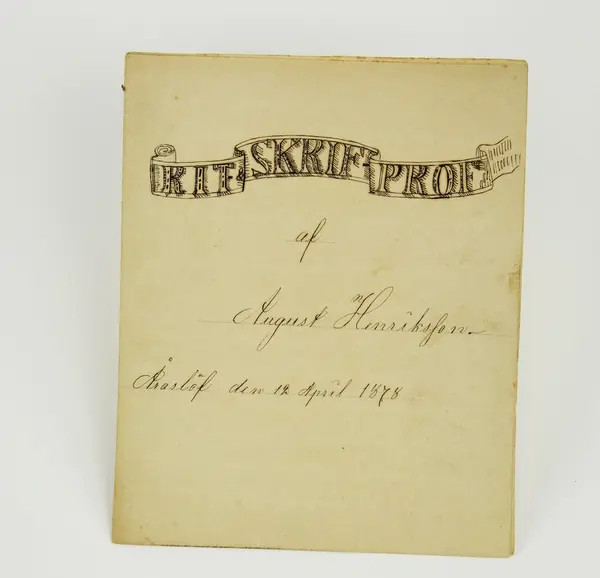 RIT- SKRIF- PROF
af
August Henriksson.
Åraslöf den 12 April 1878